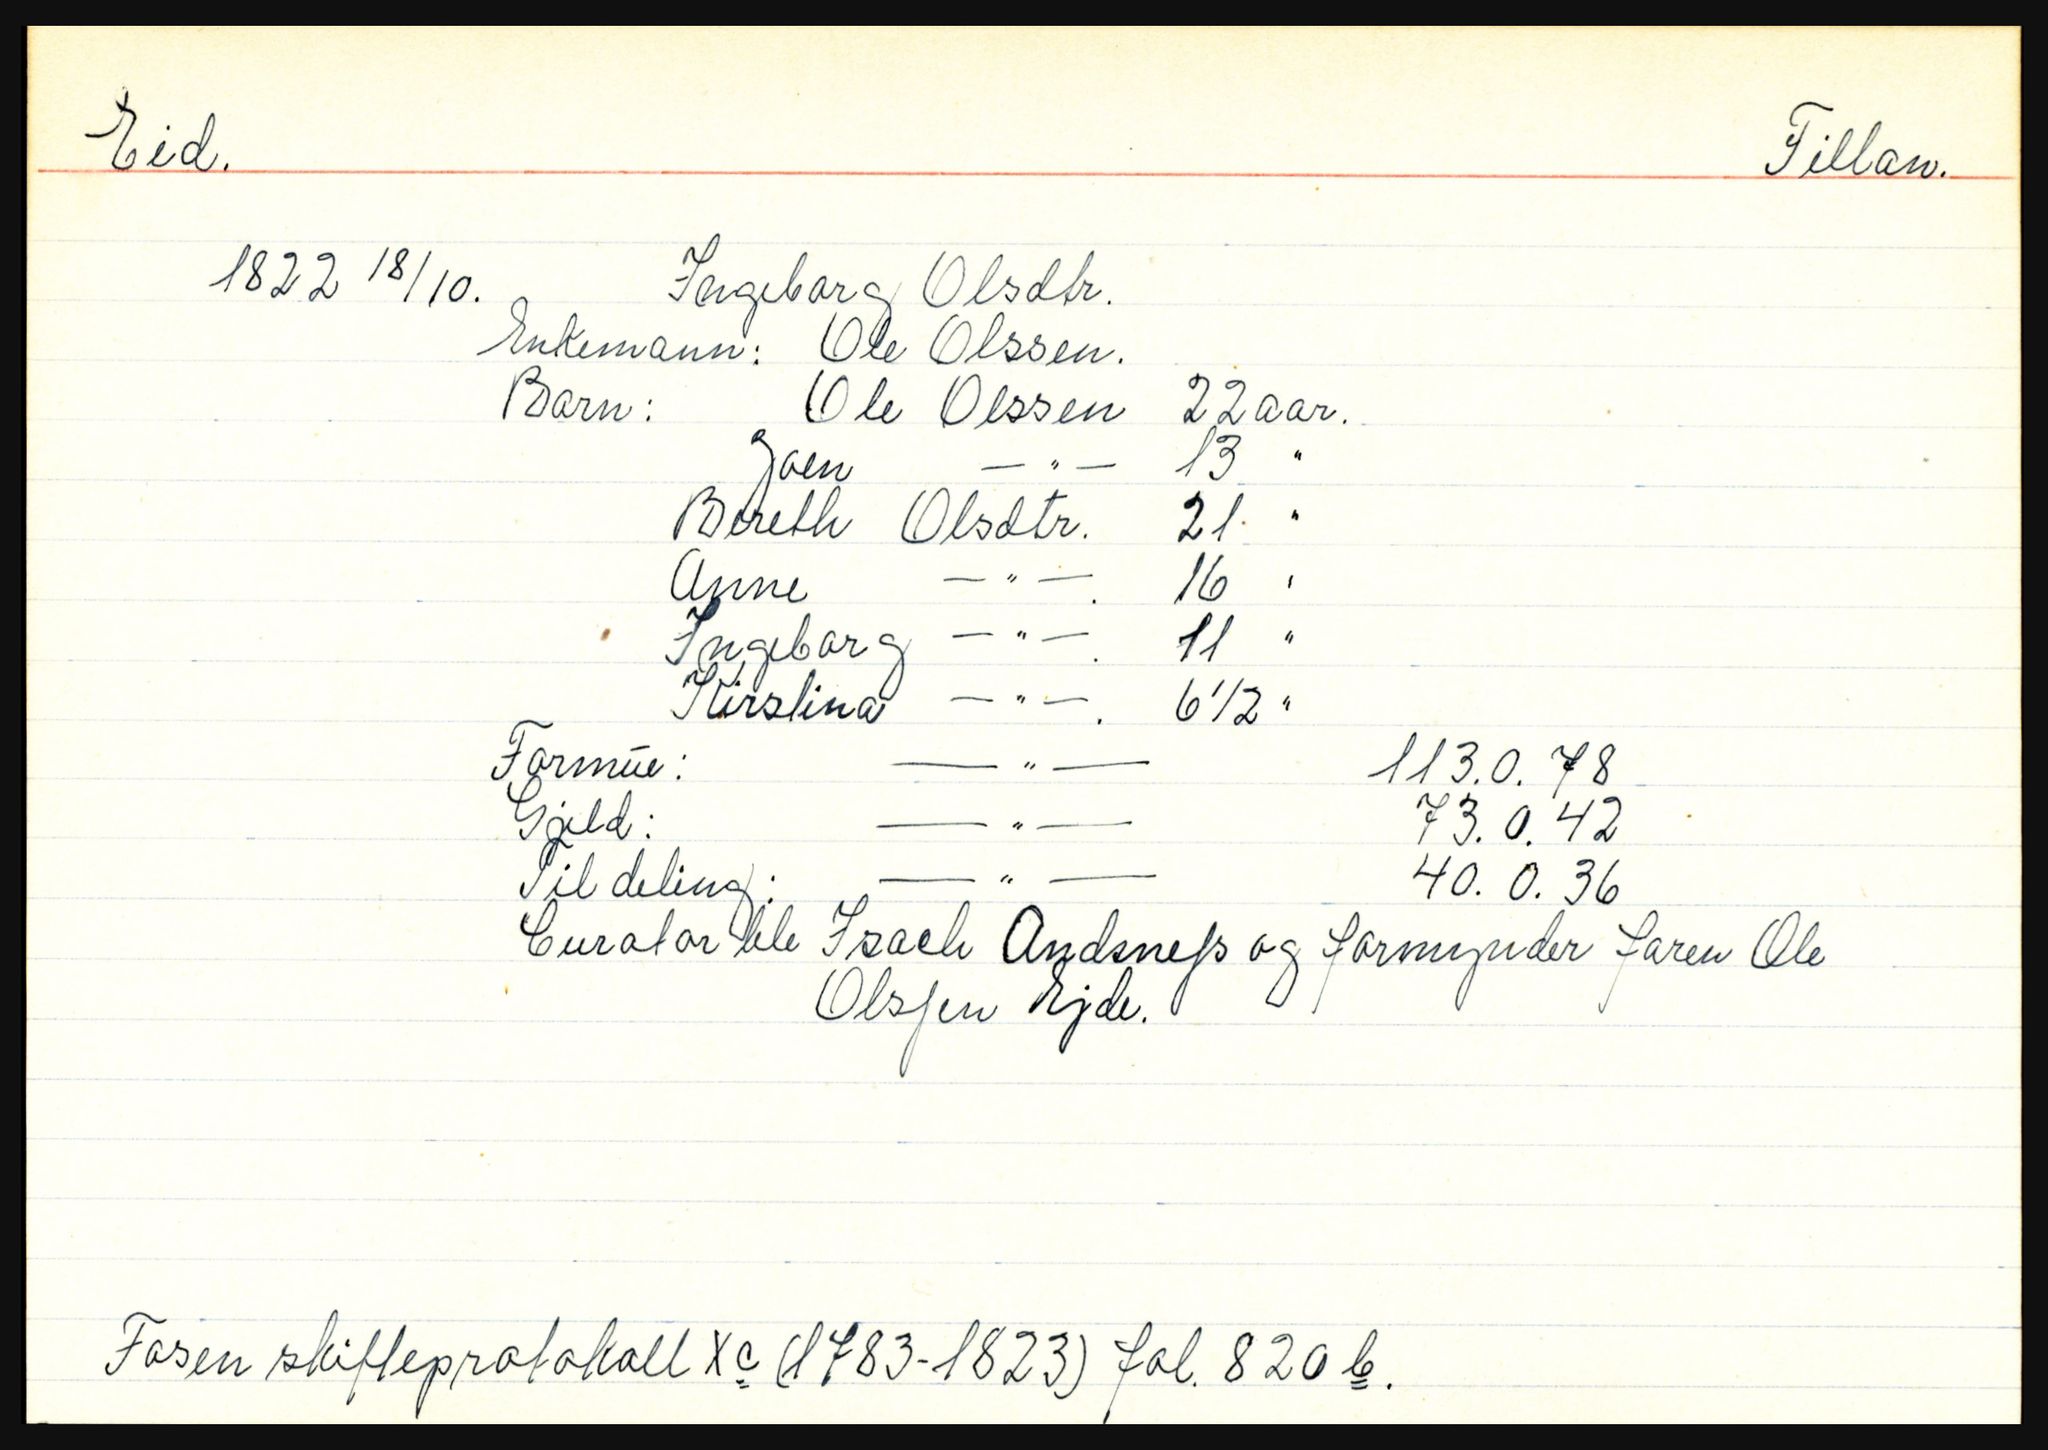 Eid. Fillan.
1822 18/10. Ingeborg Olsdtr.
Enkemann: Ole Olssen.
Barn: Ole Olssen 22 aar.
Joen —"— 13 "
Bereth Olsdtr. 21 "
Anne —"—. 16 "
Ingeborg —"—. 11 "
Kirstina —"—. 6 1/2 "
Formue: —"— 113. 0. 78
Gjeld: —"— 73. 0. 42
Til deling: —"— 40. 0. 36
Curator ble Isach Andsneſs og formynder faren Ole
Olsſen Ejde.
Fosen skifteprotokoll Xc (1783-1823) fol. 820 b.